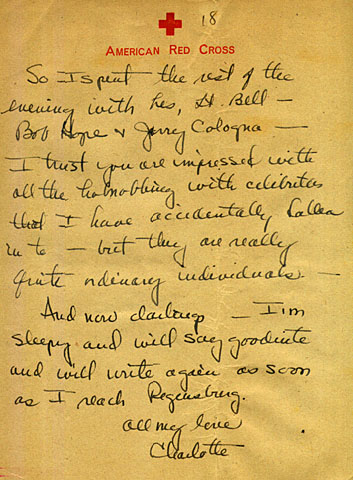 18
AMERICAN RED CROSS
So I spent the rest of the
evening with Les, Lt. Bell —
Bob Hope & Jerry Cologna —
I trust you are impressed with
all the hobnobbing with celibrites
that I have accidentally fallen
in to — but they are really
quite ordinary individuals. —
And now darlings — I'm
sleepy and will say goodnite
and will write again as soon
as I reach Regensburg.
all my love
Charlotte